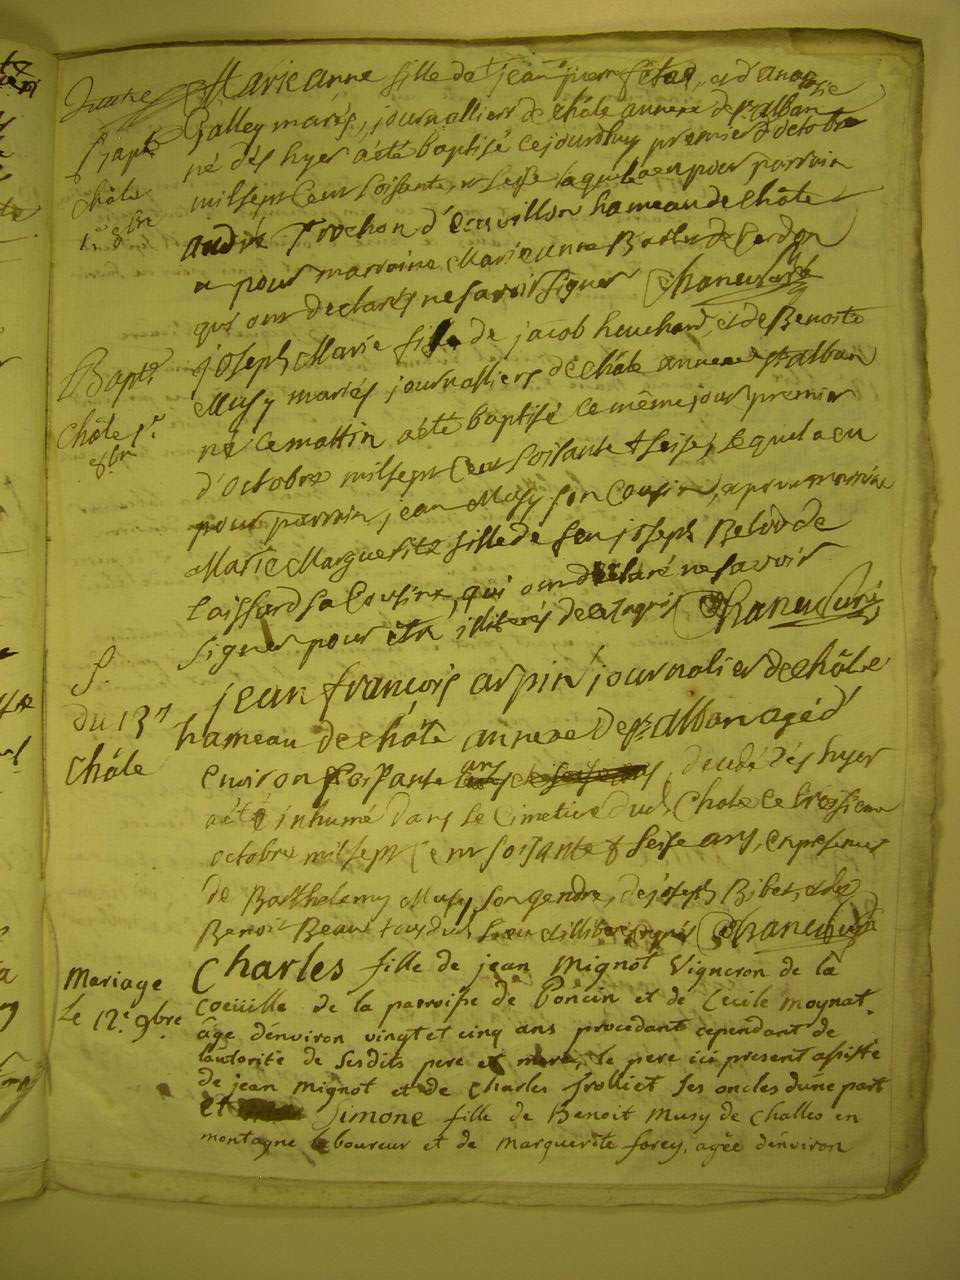 Marie anne fille de jean pierre et d'anne
Galley mariés, journalliers de châle annexe de st alban
né dés hyer a été baptisé ce jourd'huy premier d'octobre
mil sept Cent soisante et seise laquelle a eu pour parrain
andré Trochon d'Ecuvillon hameau de châle
et pour marraine Marie anne de Cerdon
qui ont declarés ne savoir signer Chanel Curé
Bapt.
Châle 1er
8bre
joseph Marie fils de jacob heuchard, et de Benoite
Musy mariés journalliers de châle annexe de st alban
né ce mattin a été baptisé ce même jour premier
d'octobre mil sept Cent soisante & seise, lequel a eu
pour parrain, jean Musy son Cousin, a pour marraine
Marie Marguerite fille de feu joseph Belod de
Laissard sa Cousine, qui ont déclaré ne savoir
signer pour être illiterés de ce requis Chanel Curé
S.
du 13
Châle
jean françois arpin journalier de châle
hameau de châle annexe de st alban agé d'
environ soisante ans decedé dés hyer
a été inhumé dans le Cimetiere dud. Chale ce treisieme
octobre mil sept Cent soisante & seise ans, en presence
de Barthelemy Musy son gendre, de joseph Bibet, et de
Benoit Beau tous dud. lieu et illiterés requis Chanel Curé
Mariage
Le 12.e 9bre
Charles fille de jean Mignot Vigneron de la
Coeüille de la paroisse de Poncin et de Cecile moynat.
âge d'environ vingt et cinq ans procedant cependant de
l'autorité de sesdits pere et mere, le pere ici present assisté
de jean mignot et de Charles frolliet ses oncles d'une part
et Simone fille de Benoit Musy de Challes en
montagne laboureur et de marguerite forey, agée d'environ